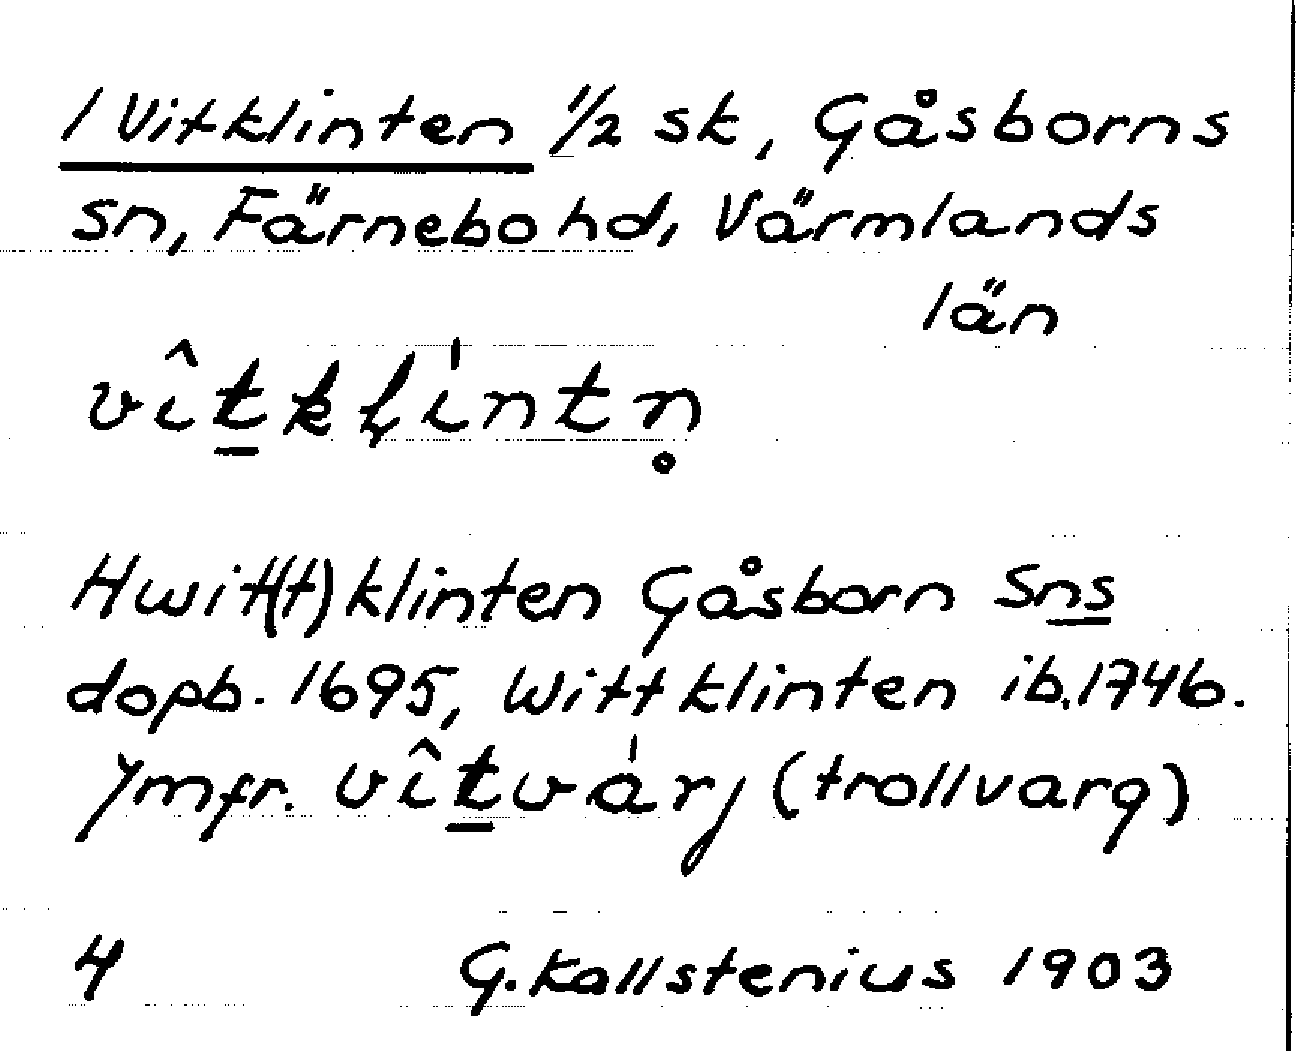 / Vitklinten 1/2 sk, Gåsborns
sn, Färnebo hd, Värmlands
län
vît̲kļi̍ntn̥
Hwit(t)klinten Gåsborn Sns
dopb. 1695, Wittklinten ib. 1746.
Jmfr. vît̲va̍rj (trollvarg)
4 G. Kallstenius 1903